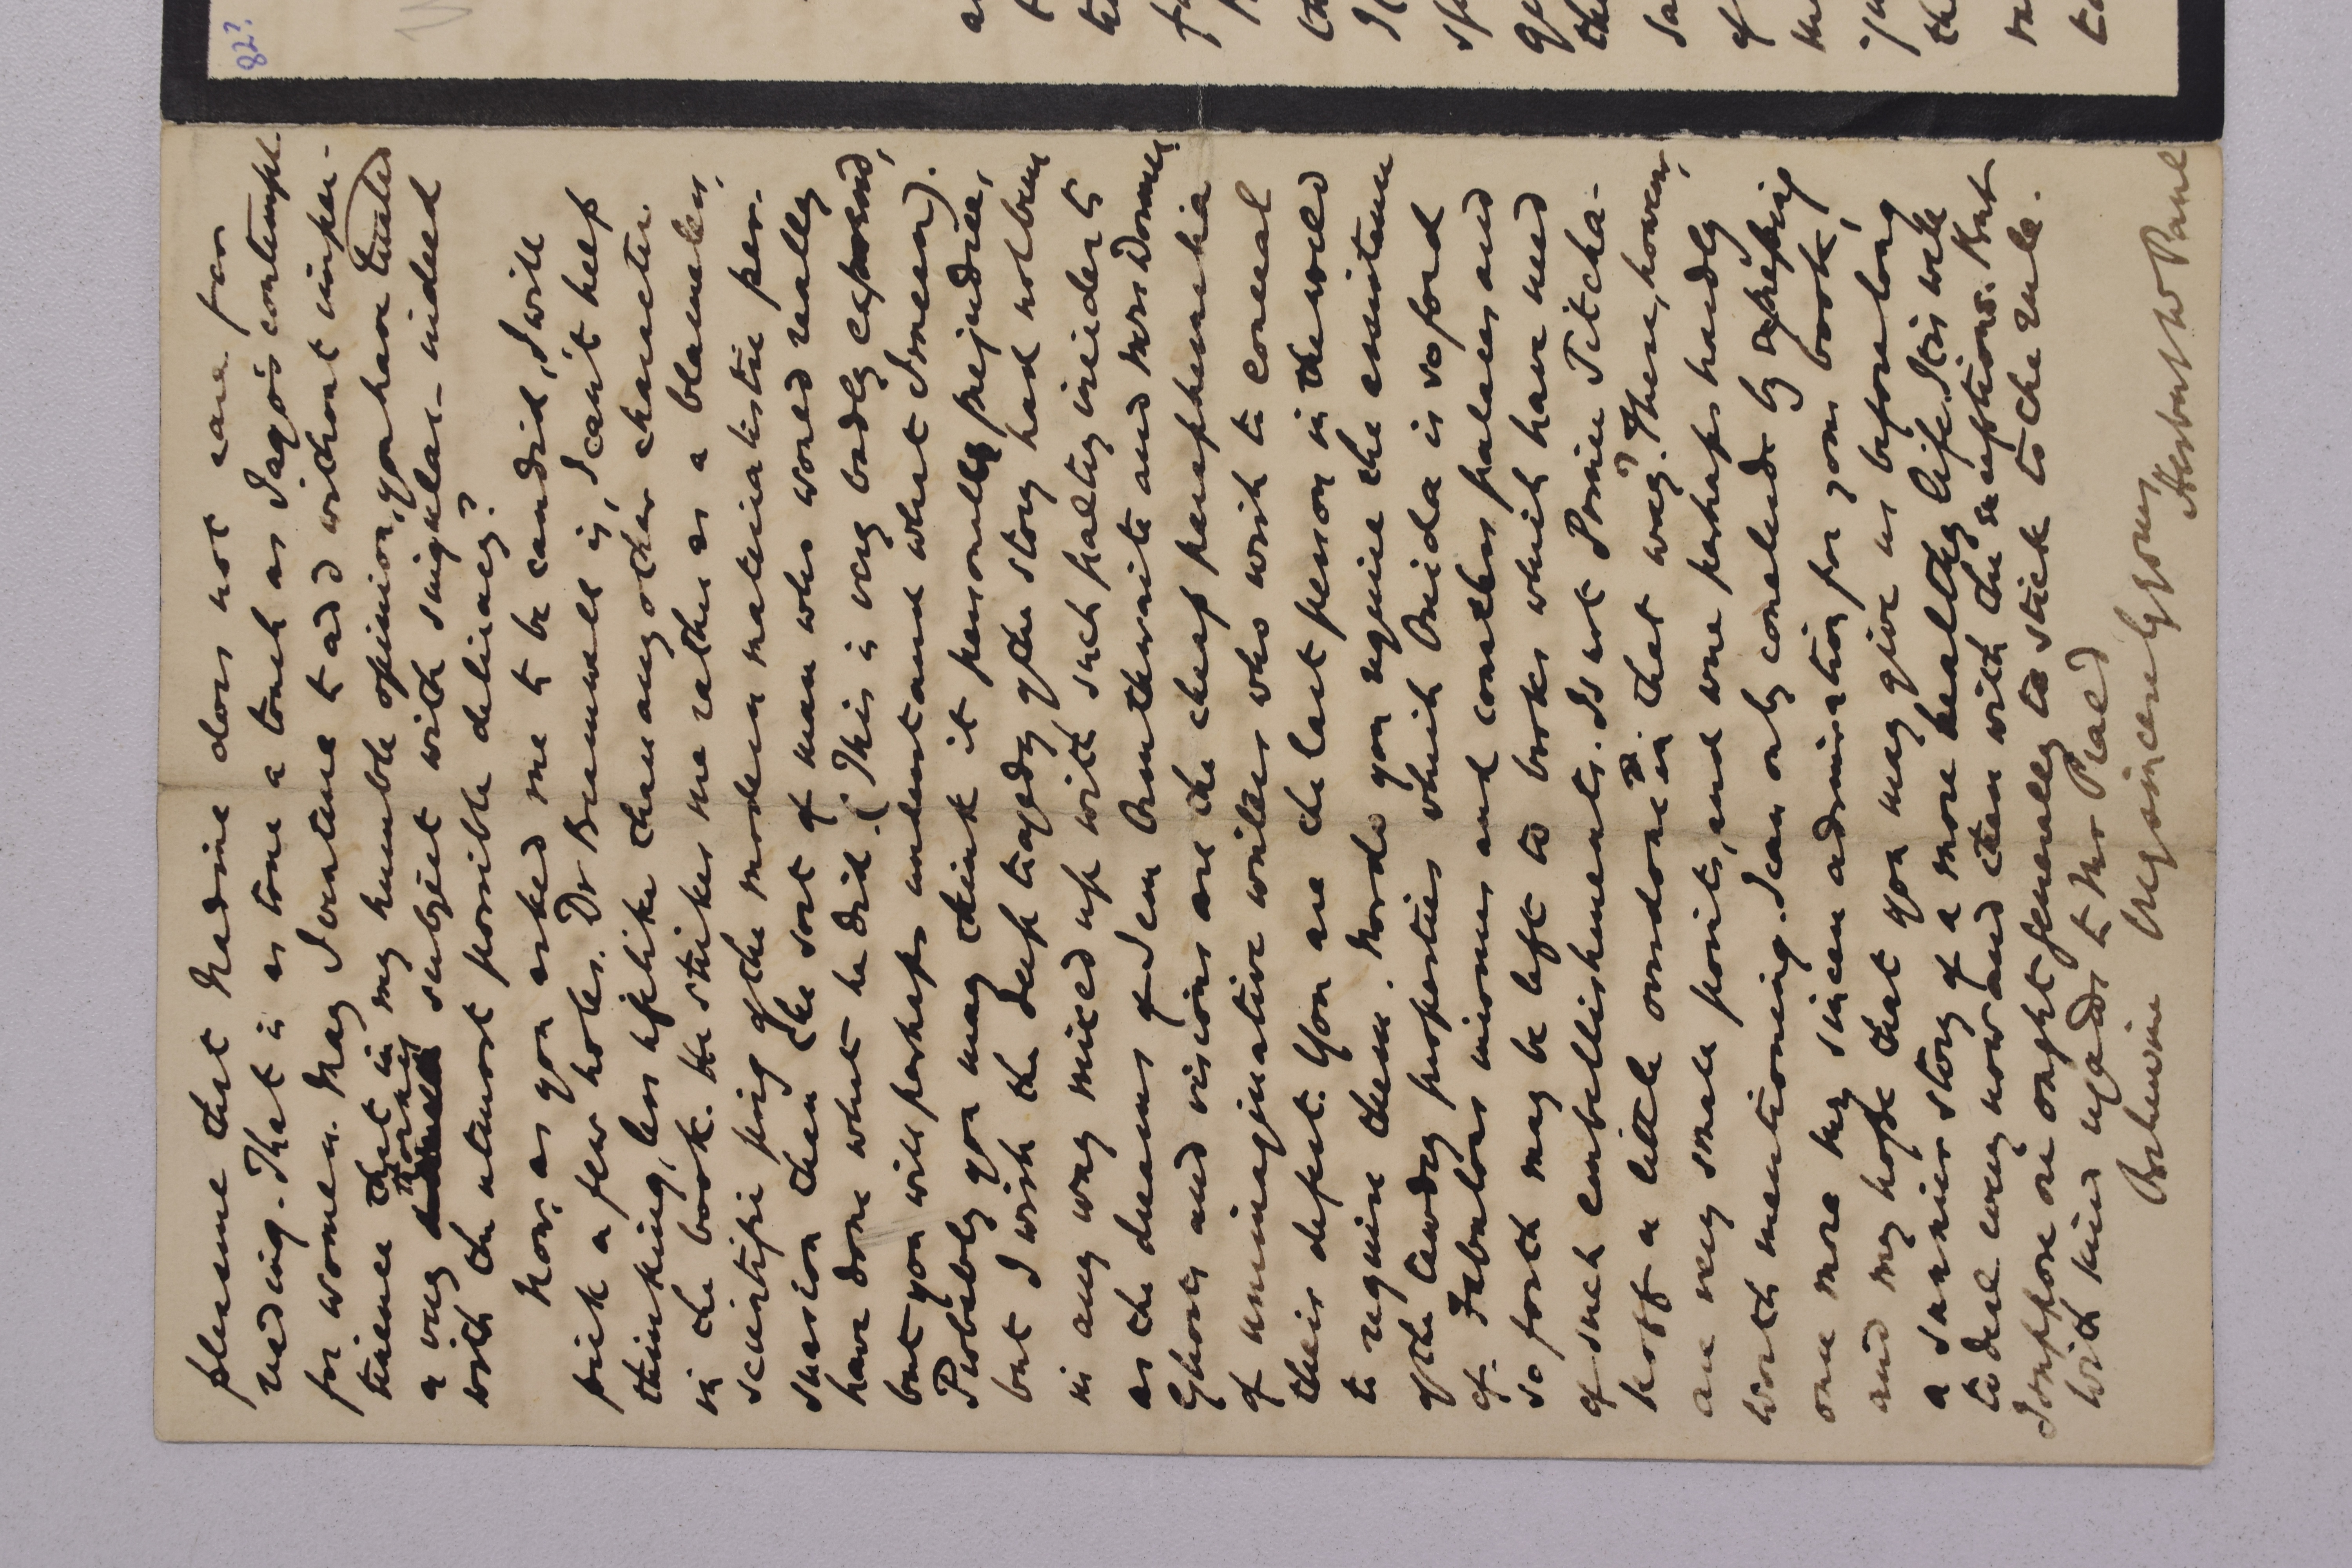 82?
pleasure that Nadine does not care for
reading. That is as true a touch as Jago's contempt
for women. May I venture to add without imper-
tinence that in my humble opinion, you have treated
a very thorny subject with singular – indeed
with the utmost possible delicacy?
Now, as you asked me to be candid, I will
pick a few holes. Dr Bramwell is, I can't help
thinking, less lifelike than any other character
in the book. He strikes me rather as a blameless,
scientific prig of the modern materialistic per-
suasion than the sort of man who would really
have done what he did. (This is very badly expressed,
but you will perhaps understand what I mean).
Probably you may think it personally prejudice,
but I wish the deep tragedy of the story had not been
in any way mixed up with such paltry incidents
as the dreams of Jem Outhwaite and Mrs Dormer.
Ghosts and visions are the cheap paraphernalia
of unimaginative writers who wish to conceal
their defect. You are the last person in the world
to require them. Nor do you require the assistance
of the tawdry properties which Ouida is so fond
of. Fabulous incomes and countless palaces and
so forth may be left to books which have need
of such embellishments. Is not Prince Titcha-
koff a little overdone in that way? These, however,
are very small points, and are perhaps hardly
worth mentioning. I can only conclude by expressing
once more my sincere admiration for your book,
and my hope that you may give us before long
a sunnier story of a more healthy life. It is well
to deal every now and then with the exceptions. But
I suppose one ought generally to stick to the rule.
With kind regards to Mr Praed
Believe me Yrs sincerely yours
Herbert W Paul